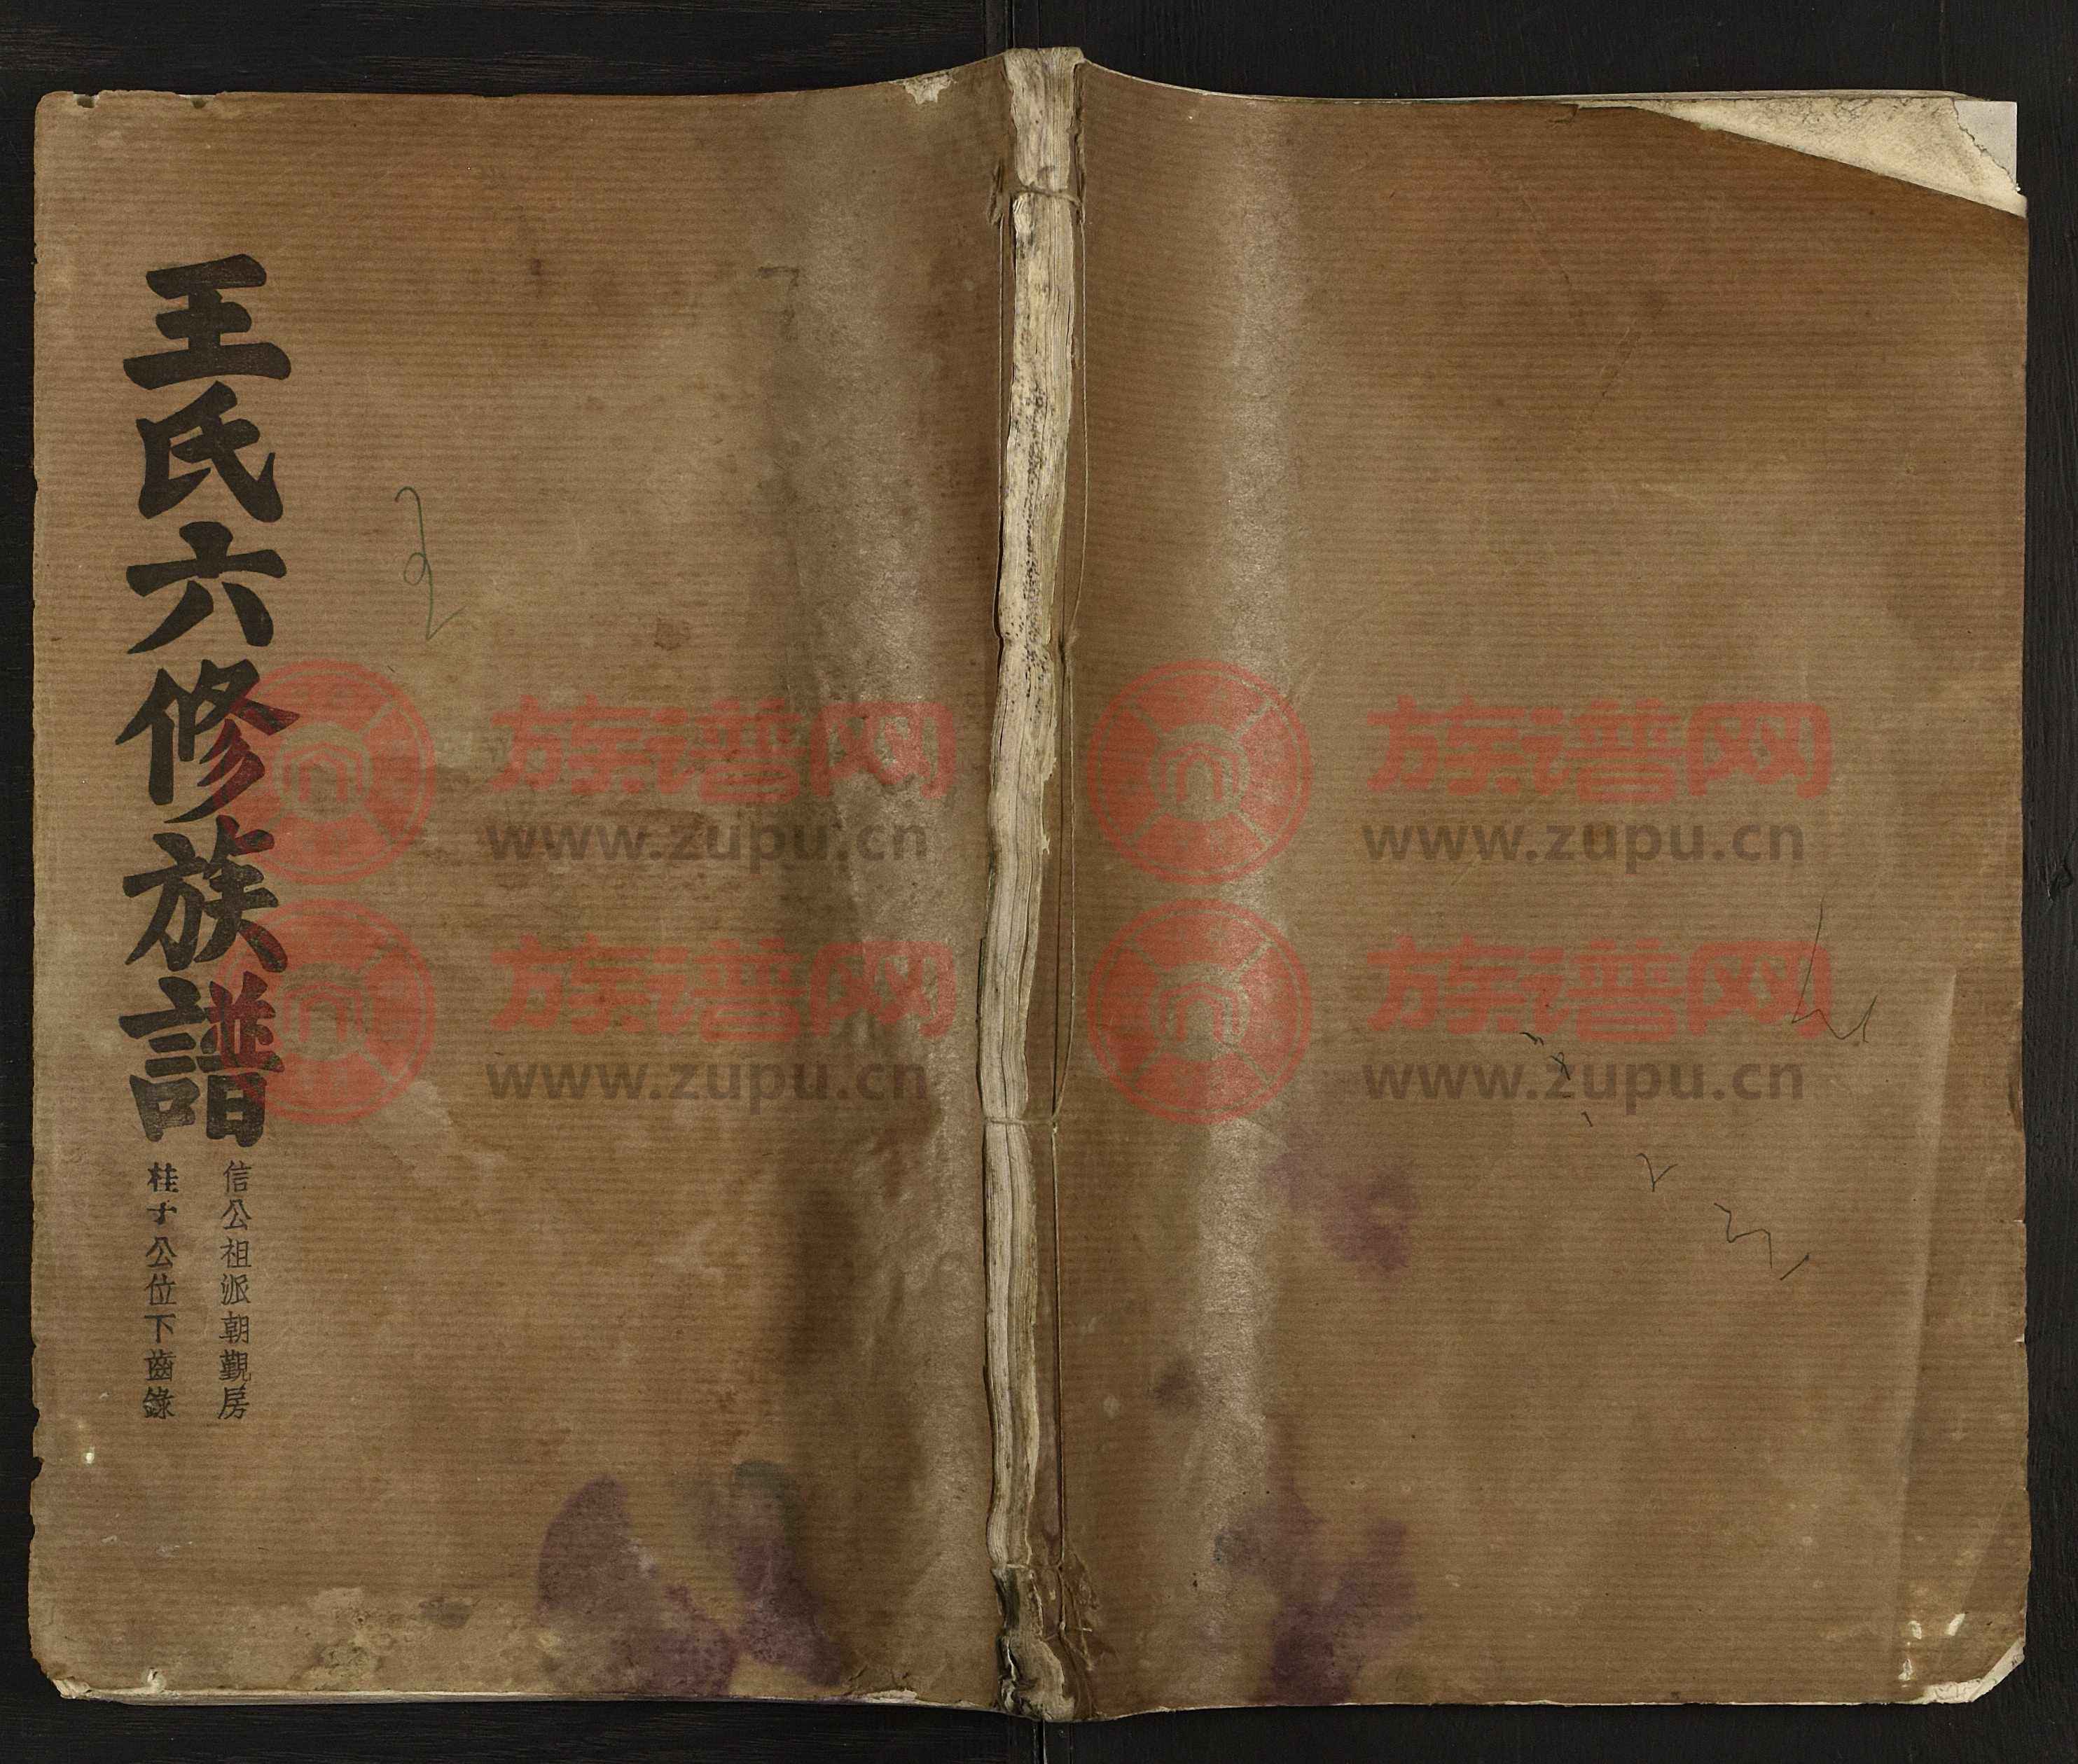 王氏六修族譜
信公祖派朝覲房
桂子公位下齒錄
2
族谱网
www.zupu.cn
族谱网
www.zupu.cn
族谱网
www.zupu.cn
族谱网
www.zupu.cn